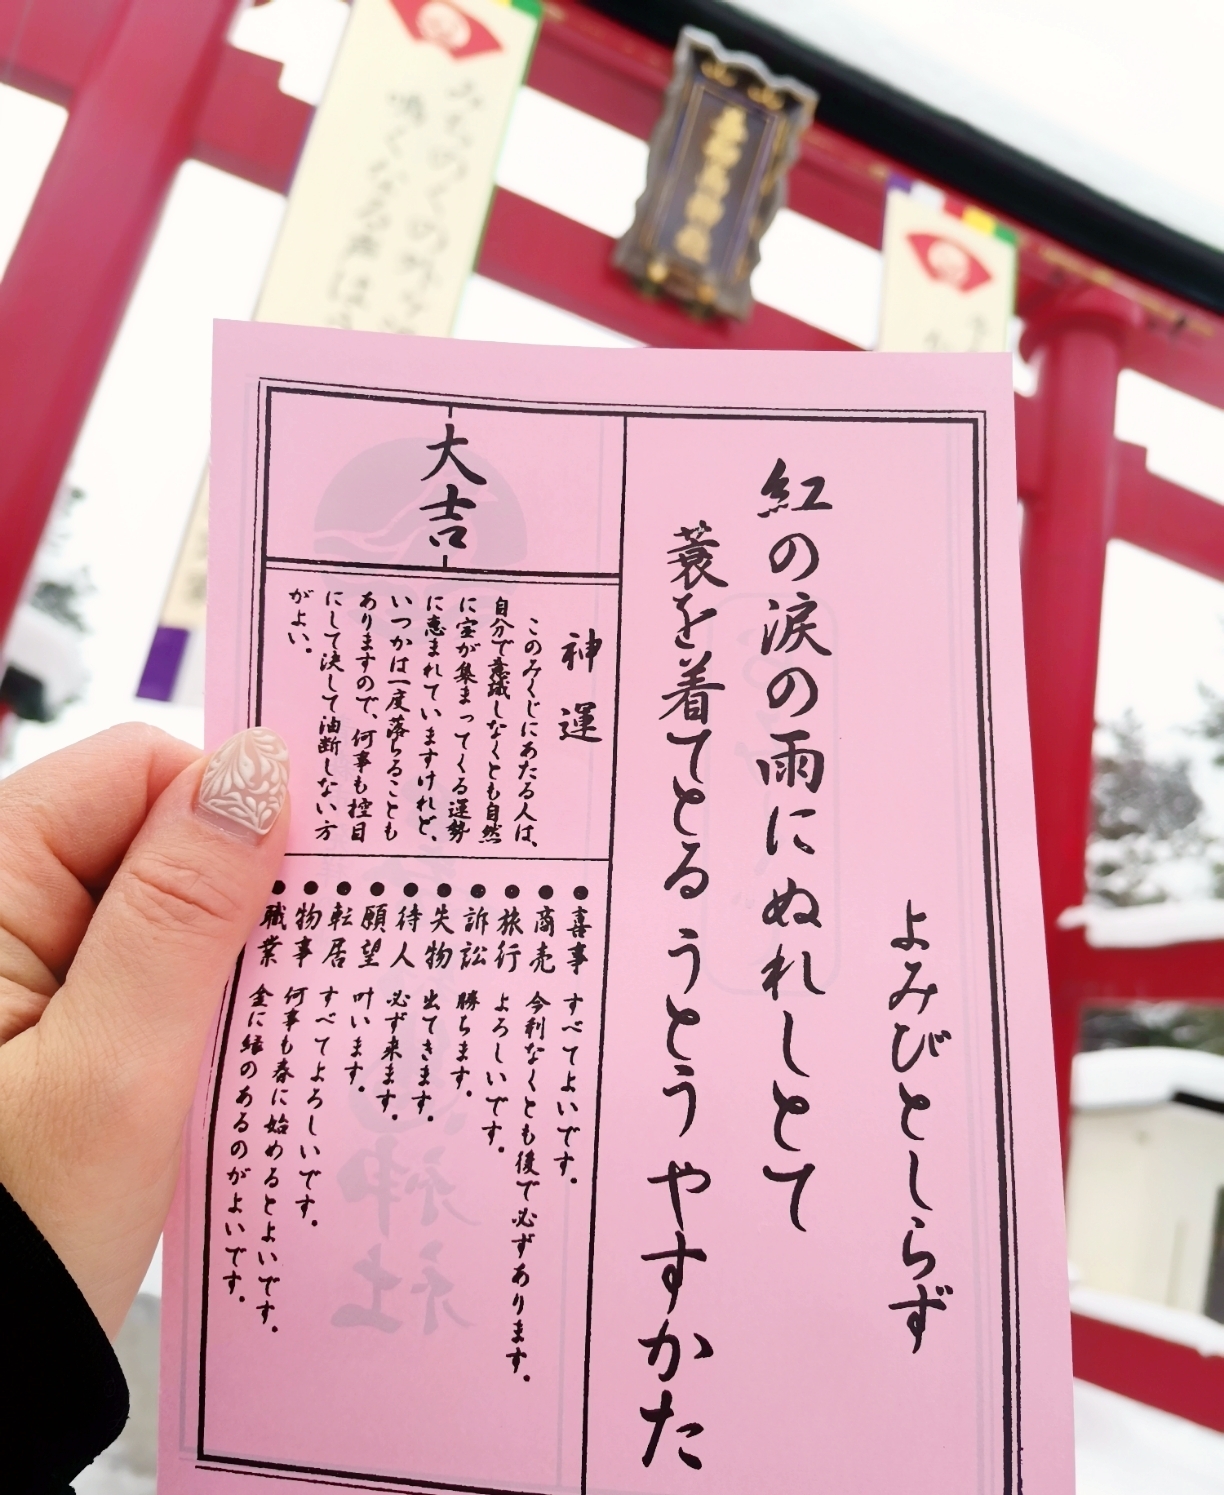 よみびとしらず
紅の涙の雨にぬれしとて
蓑を着てとるうとうやすかた
大吉
神運
このみくじにあたる人は、
自分で意識しなくとも自然
に宝が集まってくる運勢
に恵まれていますけれど、
いつかは一度落ちることも
ありますので、何事も控目
にして決して油断しない方
がよい。
●喜事 すべてよいです。
●商売 今利なくとも後で必ずあります。
●旅行 よろしいです。
●訴訟 勝ちます。
●失物 出てきます。
●待人 必ず来ます。
●願望 叶います。
●転居 すべてよろしいです。
●物事 何事も春に始めるとよいです。
●職業 金に縁のあるのがよいです。
みちのくの外ヶ
鳴くなる声は
神社